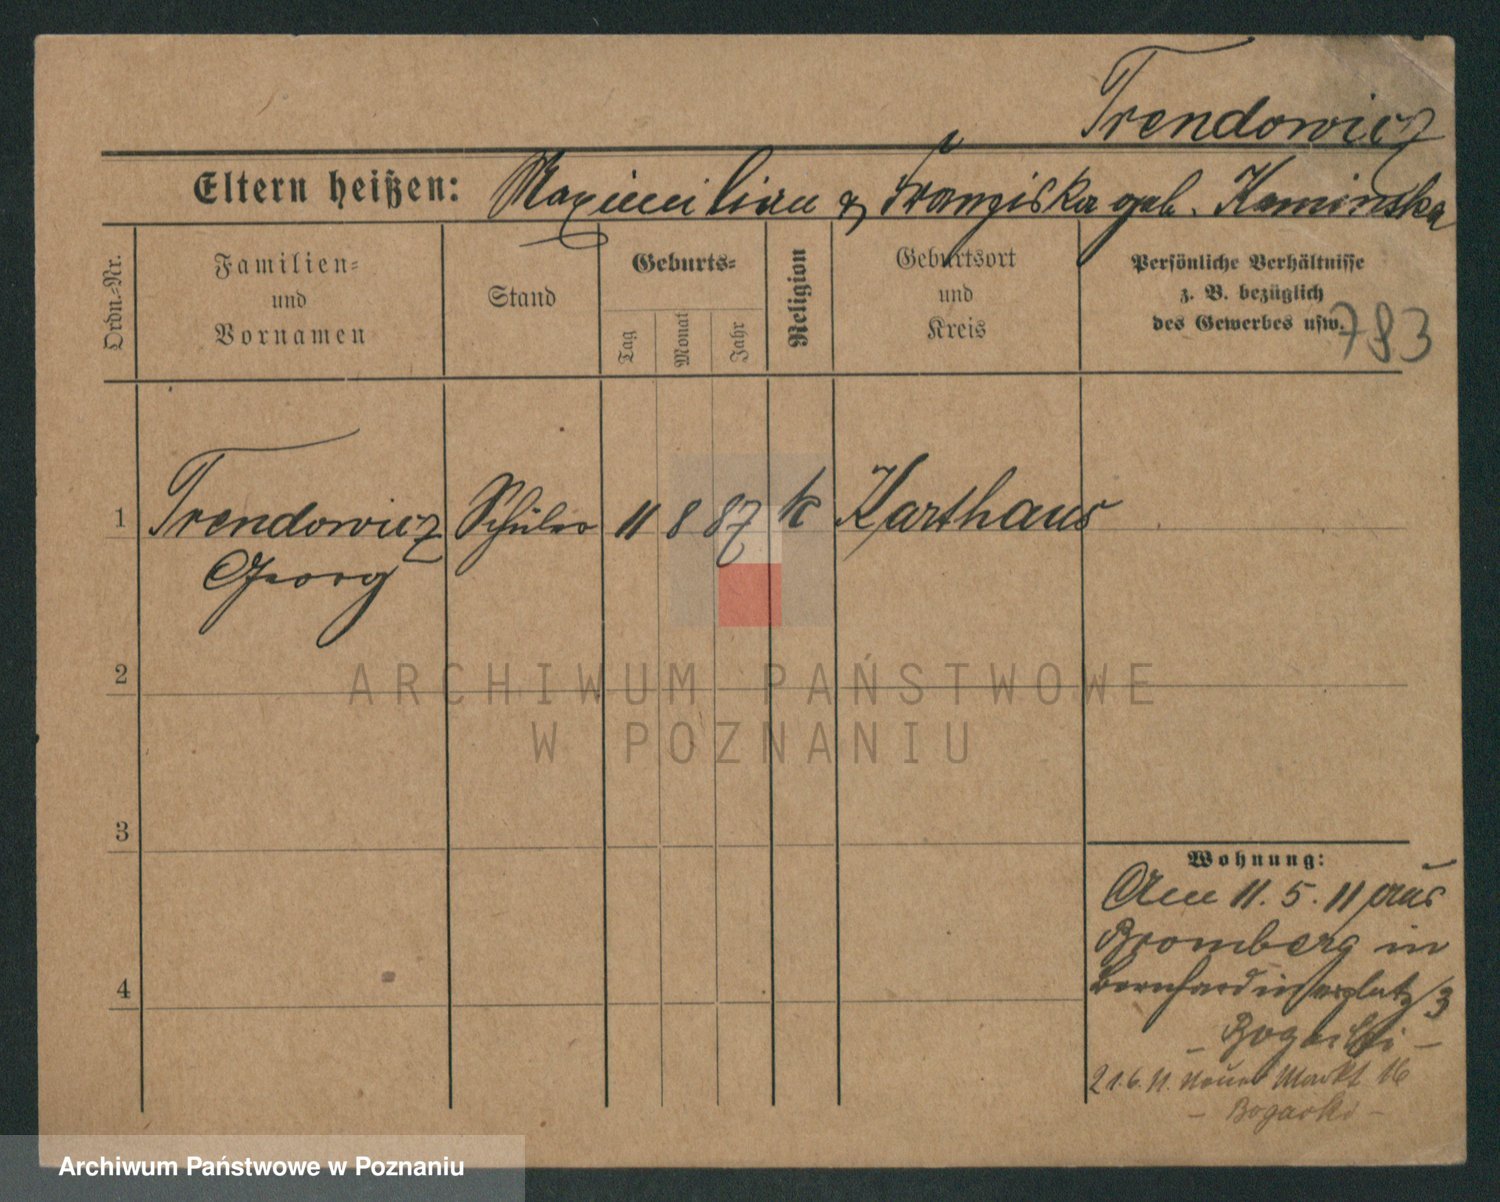 Trendowicz
Eltern heißen: Maximilian & Franziska geb. Kaminska
Ordn.=Nr.
Familien=
und
Vornamen
Stand
Geburts=
Tag
Monat
Jahr
Religion
Geburtsort
und
Kreis
Persönliche Verhältnisse
z. B. bezüglich
des Gewerbes usw.
793
1 Trendowicz Schüler 11 8 87 k Karthaus
Georg
2
ARCHIWUM PAŃSTWOWE
W POZNANIU
3
Wohnung:
Am 11.5.11 aus
Bromberg in
Bernhardinerplatz 3
– Bogacki –
4
21.6.11. Neuer Markt 16
– Bogacki –
Archiwum Państwowe w Poznaniu